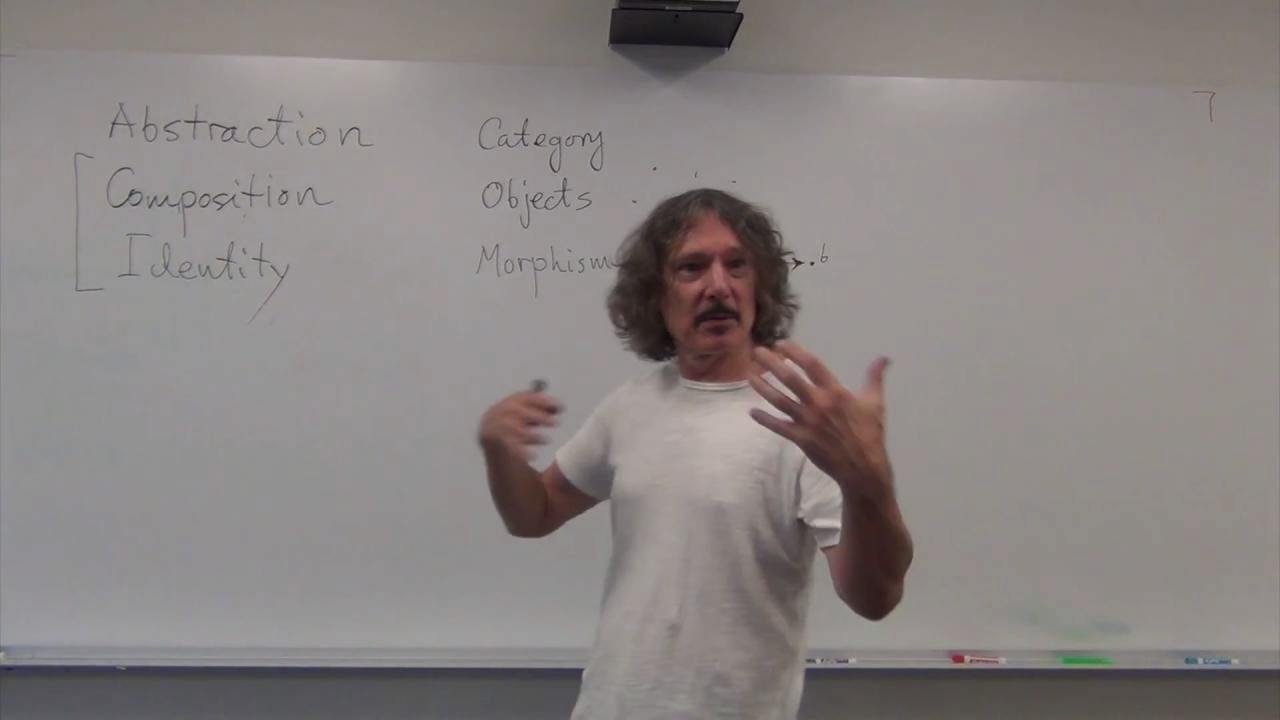 Abstraction
Composition
Identity
Category
Objects
Morphism
b